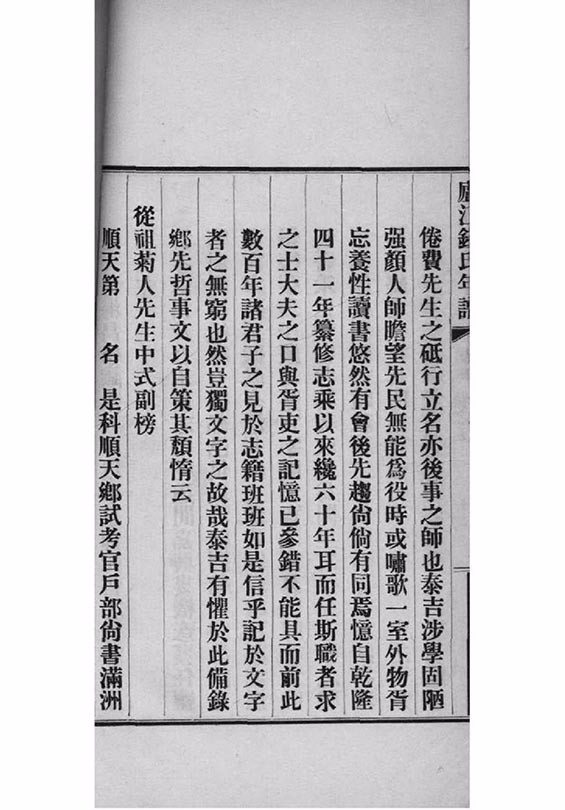 廬江錢氏年譜
倦費先生之砥行立名亦後事之師也泰吉涉學固陋
强顏人師瞻望先民無能爲役時或嘯歌一室外物胥
忘養性讀書悠然有會後先趨尙倘有同焉憶自乾隆
四十一年纂修志乘以來纔六十年耳而任斯職者求
之士大夫之口與胥吏之記憶已參錯不能具而前此
數百年諸君子之見於志籍班班如是信乎記於文字
者之無窮也然豈獨文字之故哉泰吉有懼於此備錄
鄕先哲事文以自策其頹惰云
從祖菊人先生中式副榜
順天第 名 是科順天鄕試考官戶部尙書滿洲